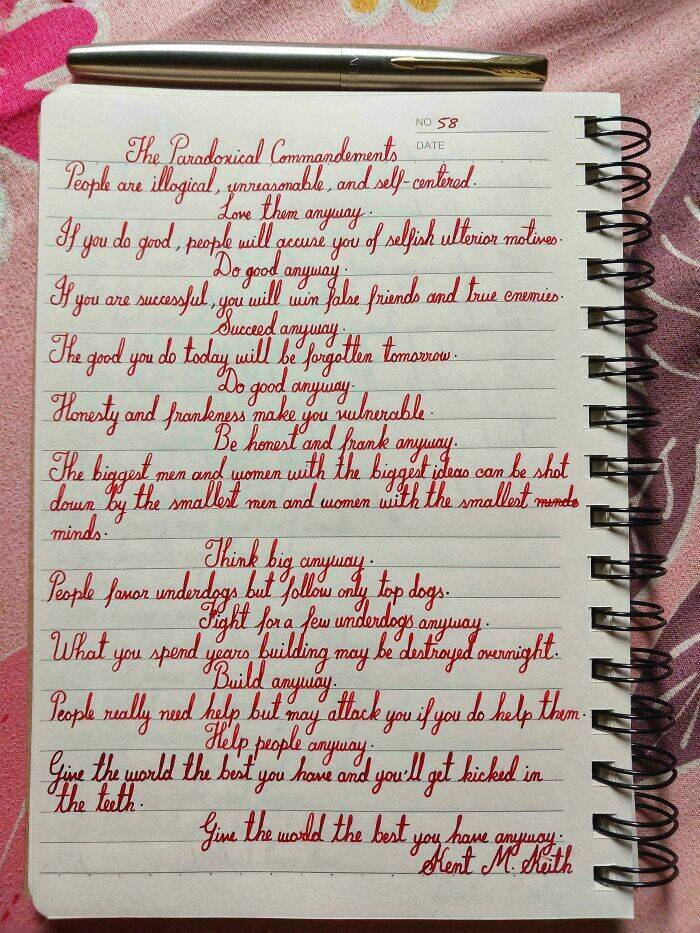 NO 58
DATE
The Paradoxical Commandements
People are illogical, unreasonable, and self-centered.
Love them anyway.
If you do good, people will accuse you of selfish ulterior motives.
Do good anyway.
If you are successful, you will win false friends and true enemies.
Succeed anyway.
The good you do today will be forgotten tomorrow.
Do good anyway.
Honesty and frankness make you vulnerable.
Be honest and frank anyway.
The biggest men and women with the biggest ideas can be shot
down by the smallest men and women with the smallest minds
minds.
Think big anyway.
People favor underdogs but follow only top dogs.
Fight for a few underdogs anyway.
What you spend years building may be destroyed overnight.
Build anyway.
People really need help but may attack you if you do help them.
Help people anyway.
Give the world the best you have and you'll get kicked in
the teeth.
Give the world the best you have anyway.
Kent M. Keith